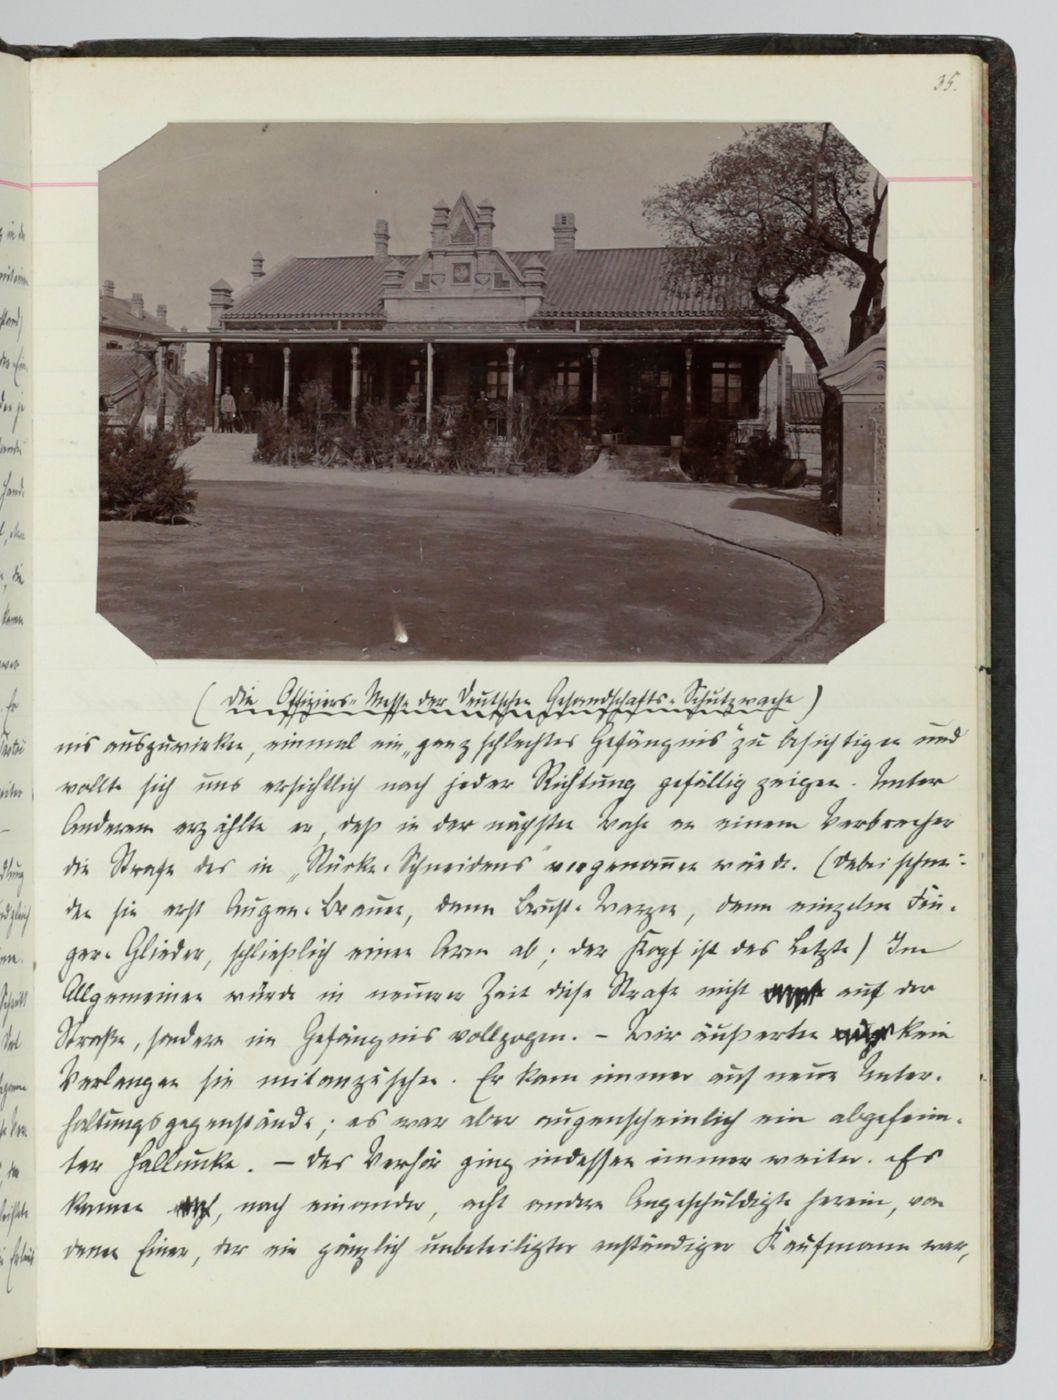 35.
(Die Offiziers-Messe der Deutschen Gesandschafts-Schutzwache)
nis auszuwirken, einmal ein „ganz schlechtes Gefängnis" zu besichtigen und
wollte sich uns ersichtlich nach jeder Richtung gefällig zeigen. Unter
Anderem erzählte er, daß in der nächsten Woche an einem Verbrecher
die Strafe des in „Stücke-Schneidens" vorgenommen würde. (Dabei schnei-
den sie erst Augen-Brauen, dann Brust-Warzen, dann einzelne Fin-
ger-Glieder, schließlich einen Arm ab; der Kopf ist das Letzte) Im
Allgemeinen würde in neuerer Zeit diese Strafe nicht auf der
Straße, sondern im Gefängnis vollzogen. – Wir äußerten kein
Verlangen sie mitanzusehen. Er kam immer auf neue Unter-
haltungsgegenstände; es war aber augenscheinlich ein abgefeim-
ter Hallunke. – Das Verhör ging indessen immer weiter. Es
kamen, nach einander, acht andere Angeschuldigte herein, von
denen Einer, der ein gänzlich unbeteiligter anständiger Kaufmann war,